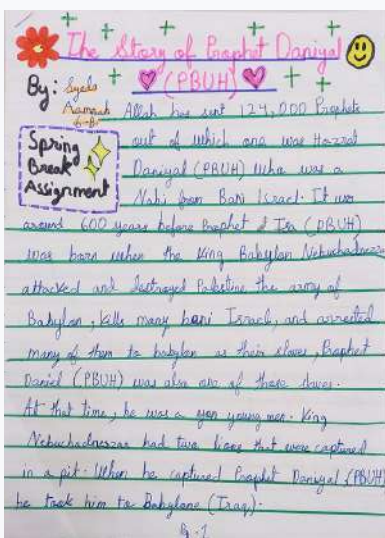 The Story of Prophet Daniyal
(PBUH)
By: Syeda
Aamnah
6-B
Spring
Break
Assignment
Allah has sent 124,000 Prophets
out of which one was Hazrat
Daniyal (PBUH) who was a
Nabi from Bani Israel. It was
around 600 years before Prophet Isa (PBUH)
was born when the King Babylon Nebuchadnezzar
attacked and destroyed Palestine the army of
Babylon, kills many bani Israel, and arrested
many of them to babylon as their slaves, Prophet
Daniel (PBUH) was also one of those slaves.
At that time, he was a young man. King
Nebuchadnezzar had two lions that were captured
in a pit. When he captured Prophet Daniyal (PBUH)
he took him to Babylone (Iraq).
Pg-1